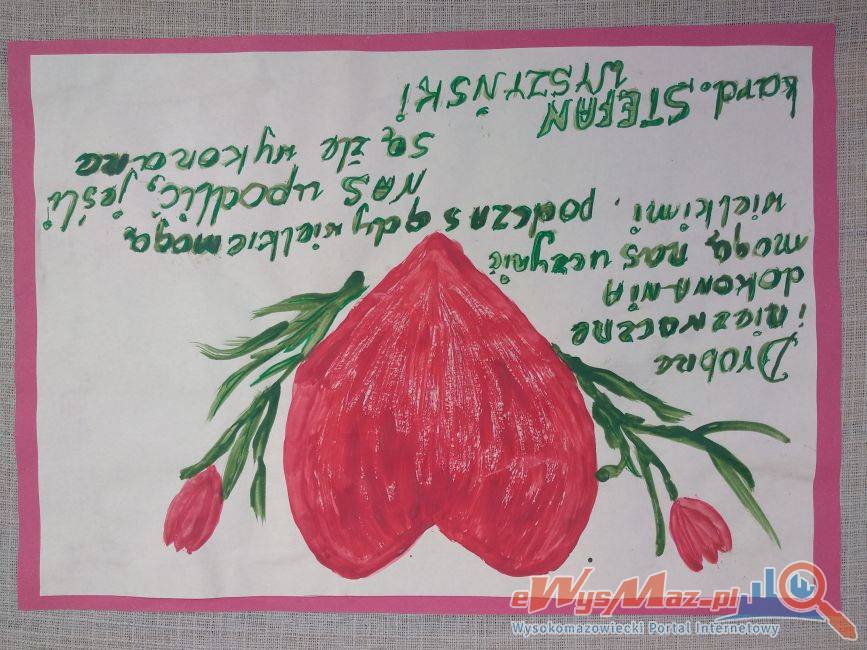 Drobne
i nieznaczne
dokonaniA
mogą nas uczynić
wielkimi, podczas gdy wielkie mogą
NAS upodlić, jeśli
są źle wykonane
kard. STEFAN
WYSZYŃSKI
eWysMaz.pl
Wysokomazowiecki Portal Internetowy